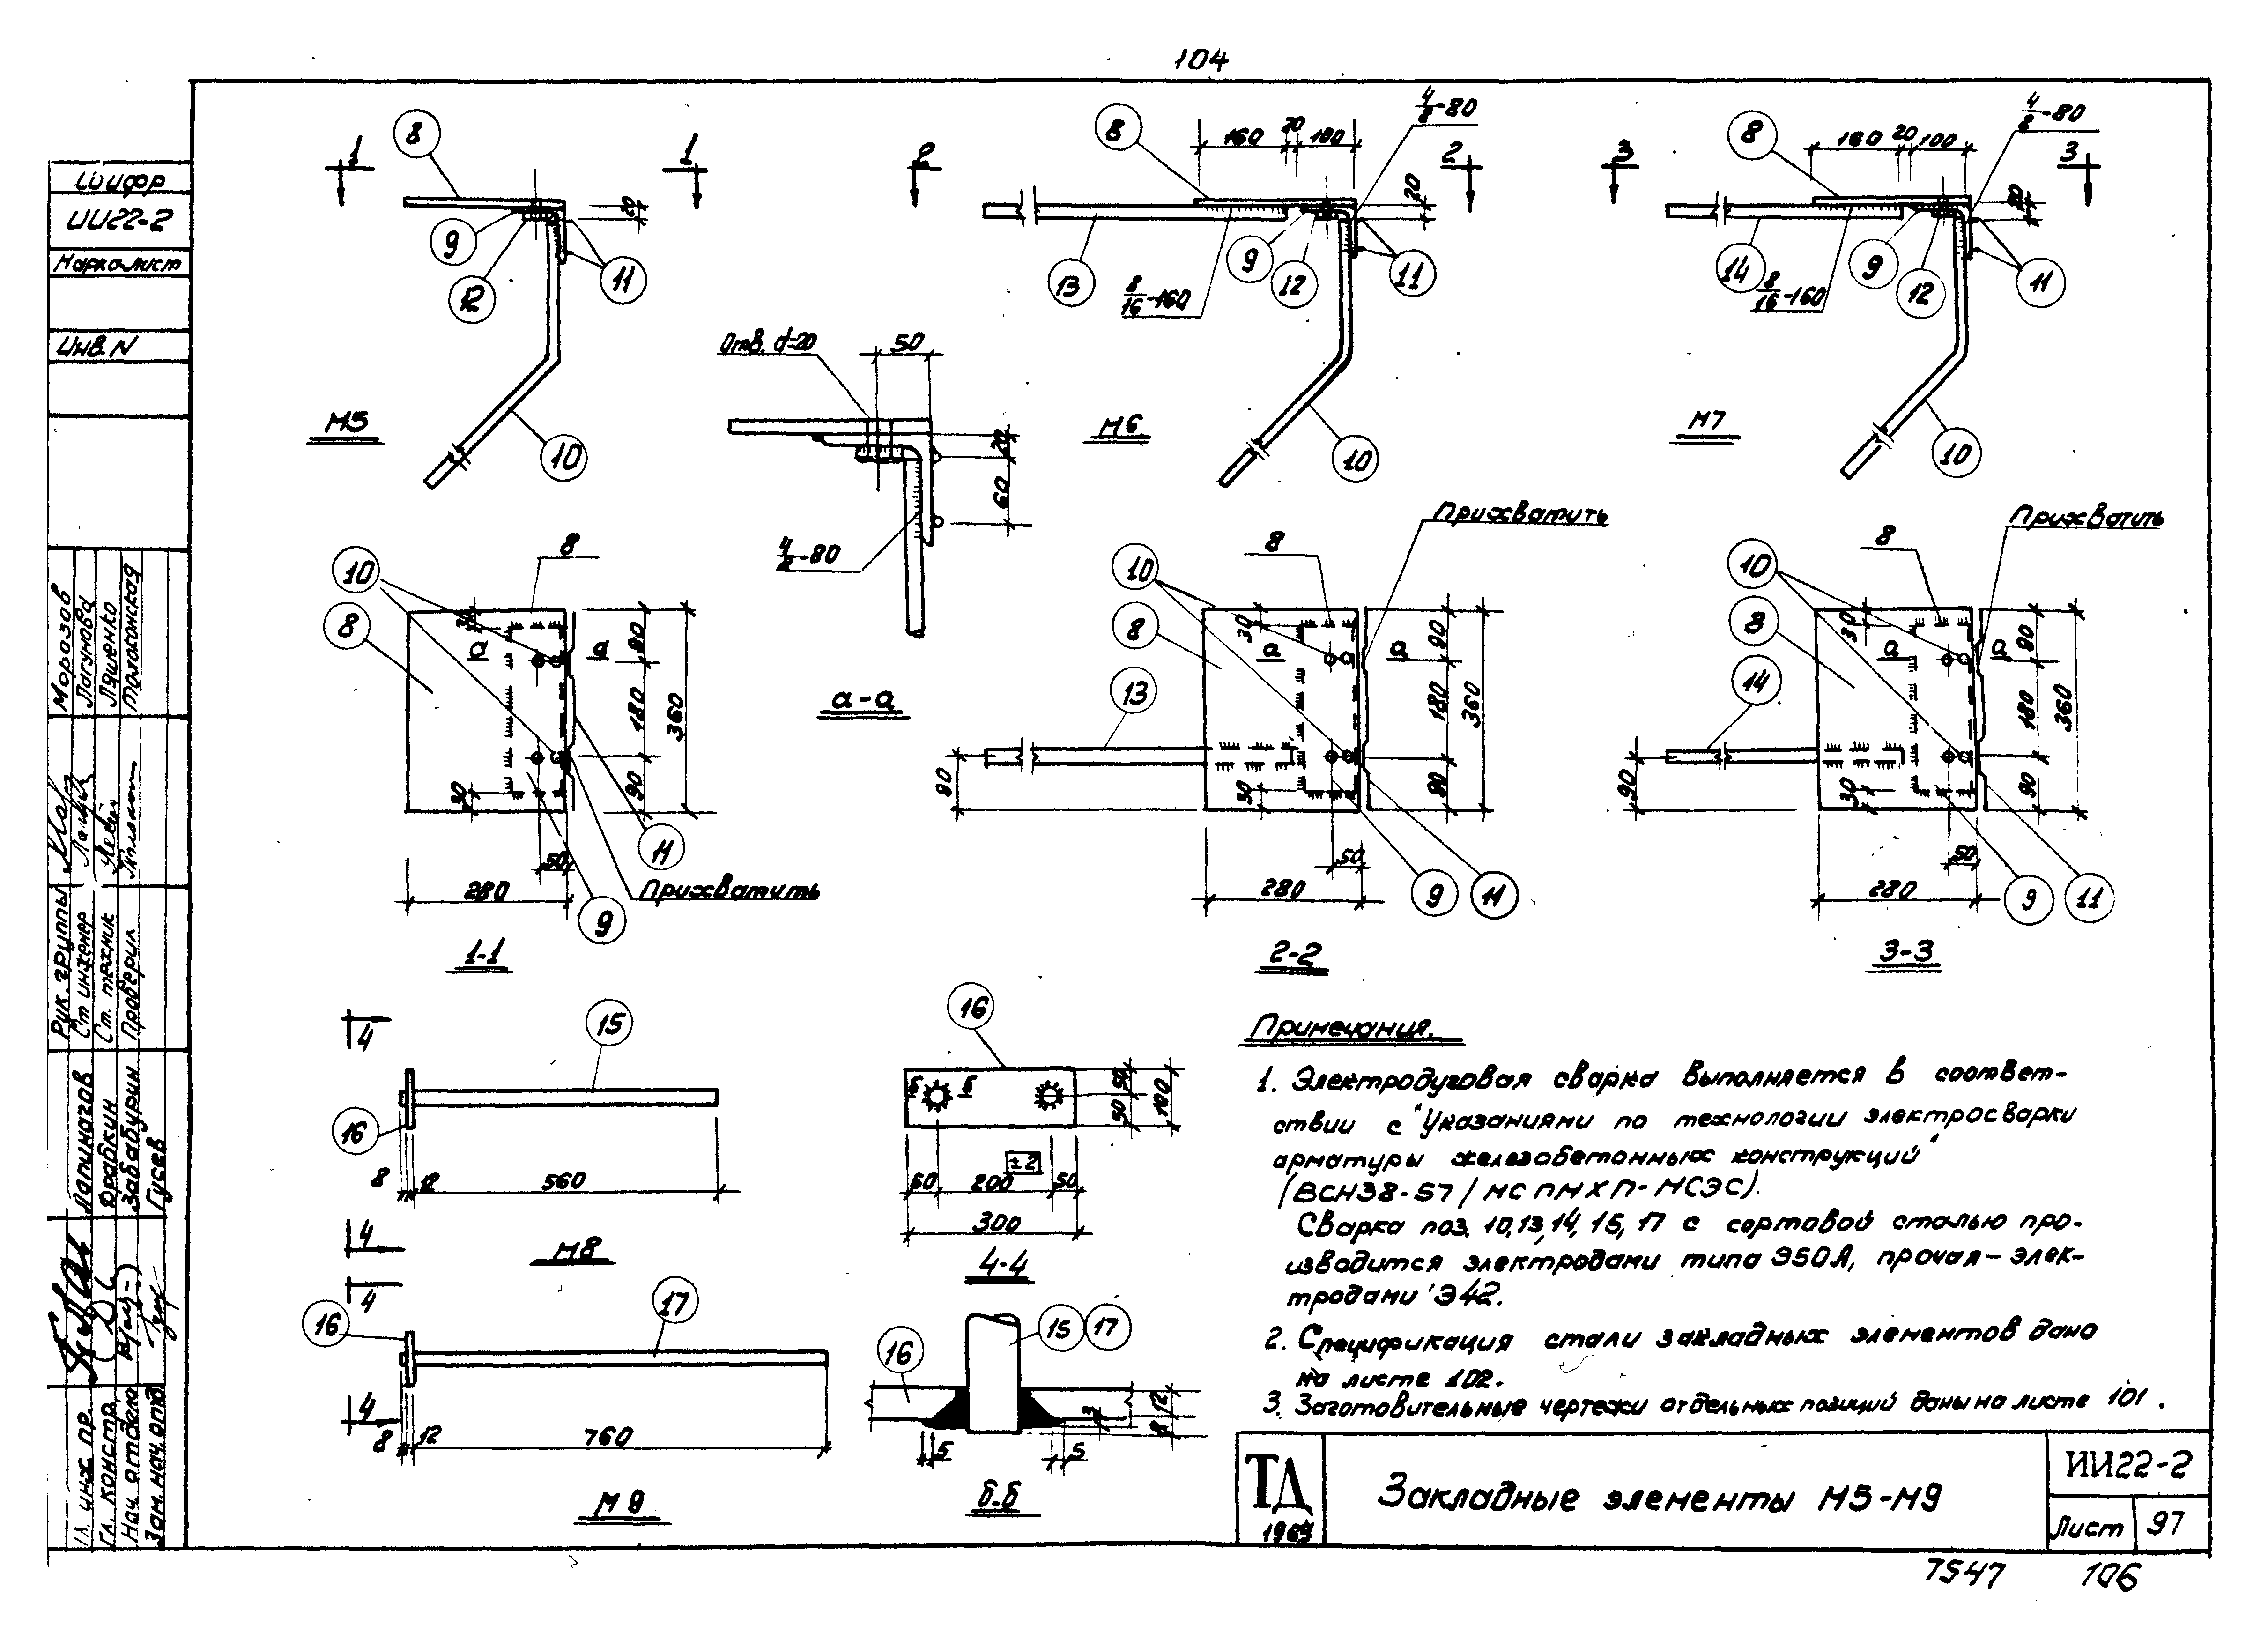 104
Шифр
ИИ22-2
Марка лист
Инв. N
Морозов
Лагунова
Ляшенко
Рук. группы
Ст инженер
Ст. техник
Проверил
Лапинагов
Фрадкин
Забабурин
Гусев
Гл. инж. пр.
Гл. констр.
Нач. отдела
Зам. нач. отд.
1 8 1
20
9
12
11
10
М5
2 8 160 20 100 4/8-80 2
20
13
8/16-160
9
12
11
10
М6
3 8 160 20 100 4/8-80 3
20
14
8/16-160
9
12
11
10
М7
Отв. d=20
50
20
60
4/8-80
а-а
10
8
8
30
а а
90
180
90
360
30
50
280
11
Прихватить
9
1-1
10
8
8
13
Прихватить
30
а а
90
180
90
360
90
30
50
280
9
11
2-2
10
8
8
14
Прихватить
30
а а
90
180
90
360
90
30
50
280
9
11
3-3
4
15
16
8 12 560
4
М8
16
Б Б
50
50
100
±2
50 200 50
300
4-4
4
16
17
4
8 12 760
М9
15 17
16
3
12
8
5 5
б-б
Примечания.
1. Электродуговая сварка выполняется в соответ-
ствии с "Указаниями по технологии электросварки
арматуры железобетонных конструкций"
(ВСН38-57/МСПМХП-МСЭС).
Сварка поз. 10,13,14, 15, 17 с сортовой сталью про-
изводится электродами типа Э50А, прочая - элек-
тродами Э42.
2. Спецификация стали закладных элементов дана
на листе 102.
3. Заготовительные чертежи отдельных позиций даны на листе 101.
ТД
1964
Закладные элементы М5-М9
ИИ22-2
Лист 97
7547 106